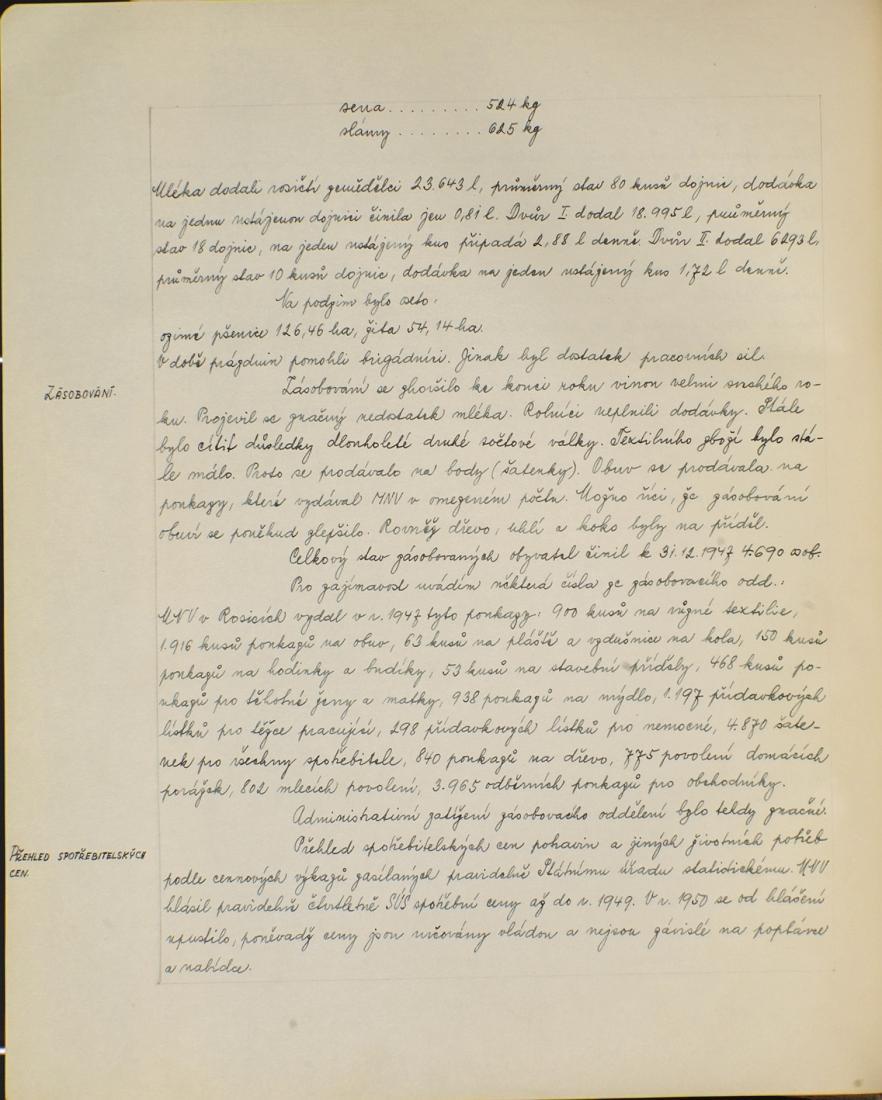 sena . . . . . . . . . 524 kg
slámy . . . . . . . . 625 kg
Mléka dodali rosičtí zemědělci 23.643 l, průměrný stav 80 kusů dojnic, dodávka
na jednu ustájenou dojnici činila jen 0,81 l. Dvůr I. dodal 18.995 l, průměrný
stav 18 dojnic, na jeden ustájený kus připadá 2,88 l denně. Dvůr II. dodal 6293 l,
průměrný stav 10 kusů dojnic, dodávka na jeden ustájený kus 1,72 l denně.
Na podzim bylo seto:
ozimé pšenice 126,46 ha, žita 54,14 ha.
V době prázdnin pomohli brigádníci. Jinak byl dostatek pracovních sil.
ZÁSOBOVÁNÍ.
Zásobování se zhoršilo ke konci roku vinou velmi suchého ro-
ku. Projevil se značný nedostatek mléka. Rolníci neplnili dodávky. Stále
bylo cítit důsledky dlouholeté druhé světové války. Textilního zboží bylo stá-
le málo. Proto se prodávalo na body (šatenky). Obuv se prodávala na
poukazy, které vydával MNV v omezeném počtu. Možno říci, že zásobování
obuví se poněkud zlepšilo. Rovněž dřevo, uhlí a koks byly na příděl.
Celkový stav zásobovaných obyvatel činil k 31.12.1947 4.690 osob.
Pro zajímavost uvádím některá čísla ze zásobovacího odd.:
MNV v Rosicích vydal v r. 1947 tyto poukazy: 900 kusů na různé textilie,
1.916 kusů poukazů na obuv, 63 kusů na pláště a vzdušnice na kola, 150 kusů
poukazů na hodinky a budíky, 53 kusů na stavební příděly, 468 kusů po-
ukazů pro těhotné ženy a matky, 938 poukazů na mýdlo, 1.197 přídavkových
lístků pro těžce pracující, 298 přídavkových lístků pro nemocné, 4.870 šate-
nek pro všechny spotřebitele, 840 poukazů na dřevo, 775 povolení domácích
porážek, 802 mlecích povolení, 3.965 odběrních poukazů pro obchodníky.
Administrativní zatížení zásobovacího oddělení bylo tehdy značné.
PŘEHLED SPOTŘEBITELSKÝCH
CEN.
Přehled spotřebitelských cen potravin a jiných životních potřeb
podle cenových výkazů zasílaných pravidelně Státnímu úřadu statistickému. MNV
hlásil pravidelně čtvrtletně SÚS spotřební ceny až do r. 1949. V r. 1950 se od hlášení
upustilo, poněvadž ceny jsou určovány vládou a nejsou závislé na poptávce
a nabídce.